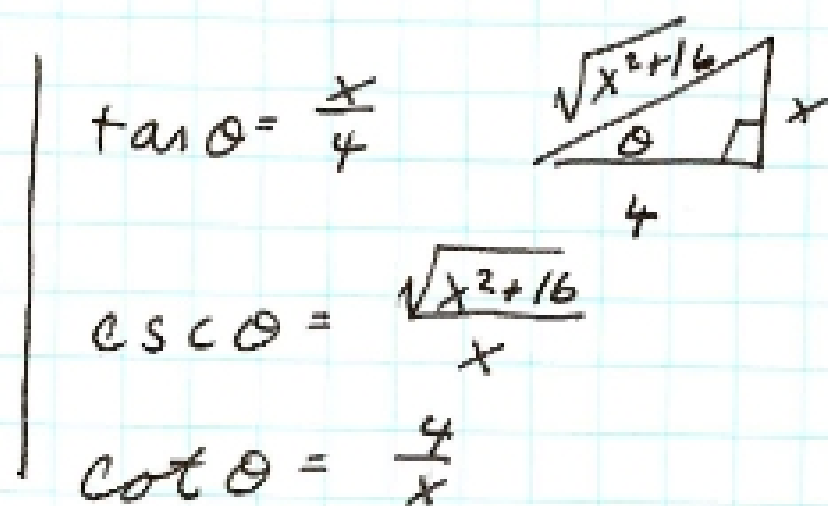 tan θ = x/4
√x²+16
x
θ
4
csc θ = √x²+16/x
cot θ = 4/x